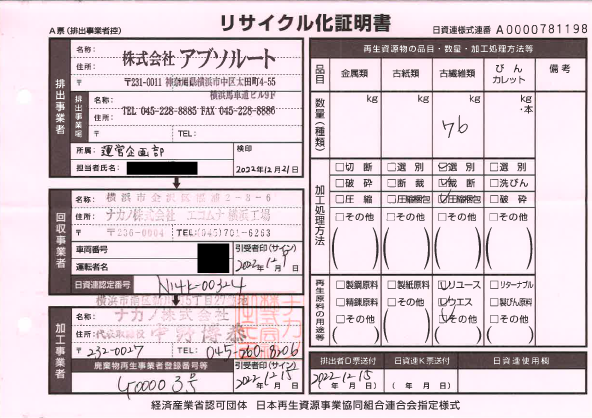 リサイクル化証明書
A票(排出事業者控)
日資連様式連番 A0000781198
排出事業者
名称:
株式会社 アブソルート
住所:
〒231-0011 神奈川県横浜市中区太田町4-55
横浜馬車道ビル9F
TEL 045-228-8885 FAX 045-228-8886
排出事業場
名称:
住所:
〒
TEL:
所属: 運営企画部
担当者氏名:
検印
2022年12月21日
回収事業者
名称:
住所:
ナカノ株式会社 エコムナ横浜工場
〒236-0004 TEL:(045)701-6263
車両番号
運転者名
引受者印(サイン)
2022年12月9日
日資連認定番号
N14K-0032-4
加工事業者
名称:
ナカノ株式会社
住所:
代表取締役
〒232-0027 TEL:
廃棄物再生事業者登録番号等
引受者印(サイン)
2022年12月15日
再生資源物の品目・数量・加工処理方法等
品目 金属類 古紙類 古繊維類 びんカレット 備考
数量(種類) kg kg kg kg・本
76
加工処理方法
□切断 □選別 ☑選別 □選別
□破砕 □断裁 ☑裁断 □洗びん
□圧縮 □圧縮梱包 ☑圧縮梱包 □破砕
□その他 □その他 □その他 □その他
再生原料の用途等
□製鋼原料 □製紙原料 ☑リユース □リターナブル
□精錬原料 □その他 ☑ウエス □製びん原料
□その他 □その他 □その他
排出者D票送付 日資連K票送付 日資連使用欄
2022-12-15
(年月日) (年月日)
経済産業省認可団体 日本再生資源事業協同組合連合会指定様式